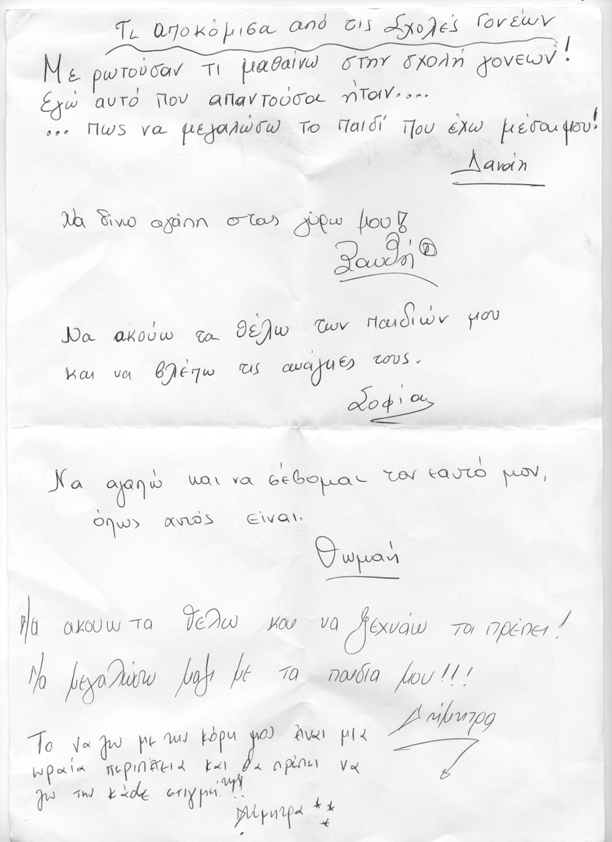 Τι αποκόμισα από τις Σχολές Γονέων
Με ρωτούσαν τι μαθαίνω στην σχολή γονέων!
Εγώ αυτό που απαντούσα ήταν....
... πως να μεγαλώσω το παιδί που έχω μέσα μου!
Δανάη
Να δίνω αγάπη στους γύρω μου!
Ξανθή
Να ακούω τα θέλω των παιδιών μου
και να βλέπω τις ανάγκες τους.
Σοφία
Να αγαπώ και να σέβομαι τον εαυτό μου,
όπως αυτός είναι.
Θωμαή
Να ακουω τα θελω και να ξεχνάω τα πρέπει!
Να μεγαλώσω μαζι με τα παιδια μου!!!
Δήμητρα
Το να ζω με την κόρη μου είναι μια
ωραία περιπέτεια και θα πρέπει να
ζω την κάθε στιγμή της!!
Δήμητρα **
*